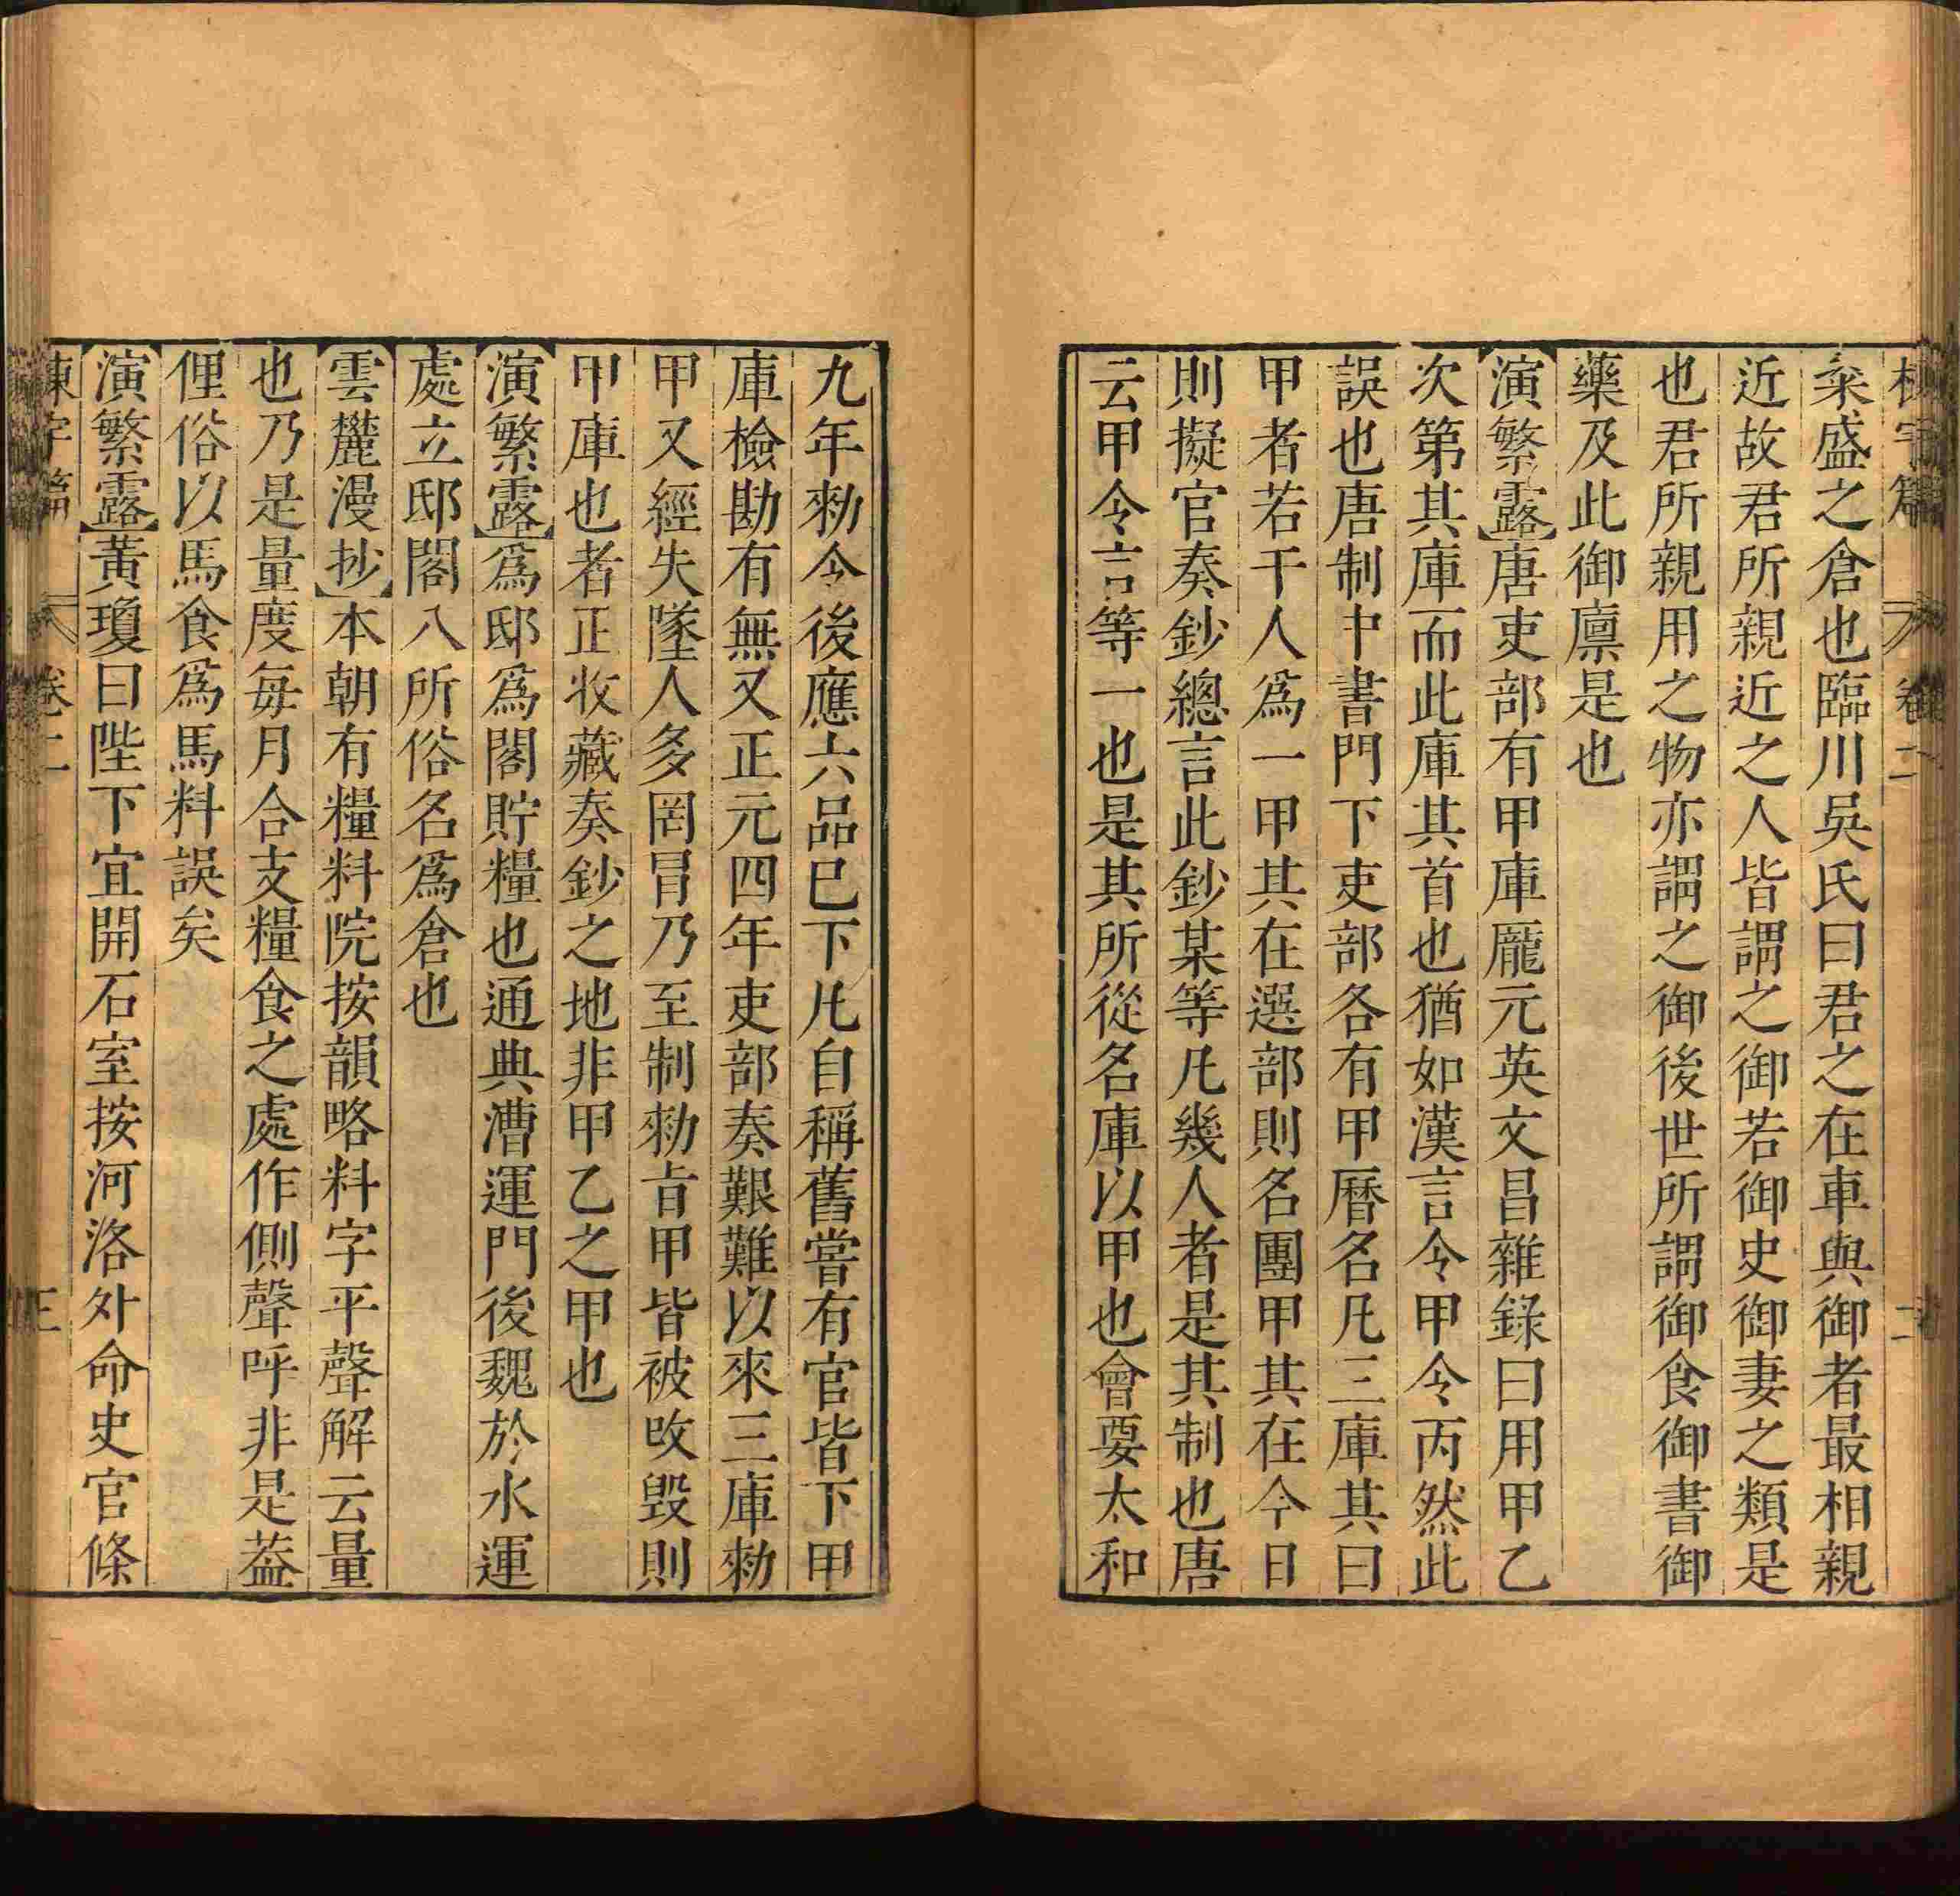 粢盛之倉也臨川吳氏曰君之在車與御者最相親
近故君所親近之人皆謂之御若御史御妻之類是
也君所親用之物亦謂之御後世所謂御食御書御
藥及此御廪是也
演繁露唐吏部有甲庫龎元英文昌雜錄曰用甲乙
次第其庫而此庫其首也猶如漢言令甲令丙然此
誤也唐制中書門下吏部各有甲曆名凡三庫其曰
甲者若干人爲一甲其在選部則名團甲其在今日
則擬官奏鈔總言此鈔某等凡幾人者是其制也唐
云甲令言等一也是其所從名庫以甲也會要太和
九年勑今後應六品巳下凡自稱舊嘗有官皆下甲
庫檢勘有無又正元四年吏部奏艱難以來三庫勑
甲又經失墜人多罔冒乃至制勑㫖甲皆被改毀則
甲庫也者正收藏奏鈔之地非甲乙之甲也
演繁露爲邸爲閣貯糧也通典漕運門後魏於水運
處立邸閣八所俗名爲倉也
雲麓漫抄本朝有糧料院按韻略料字平聲解云量
也乃是量度每月合支糧食之處作側聲呼非是葢
俚俗以馬食爲馬料誤矣
演繁露黃瓊曰陛下宜開石室按河洛外命史官條
卷二
三